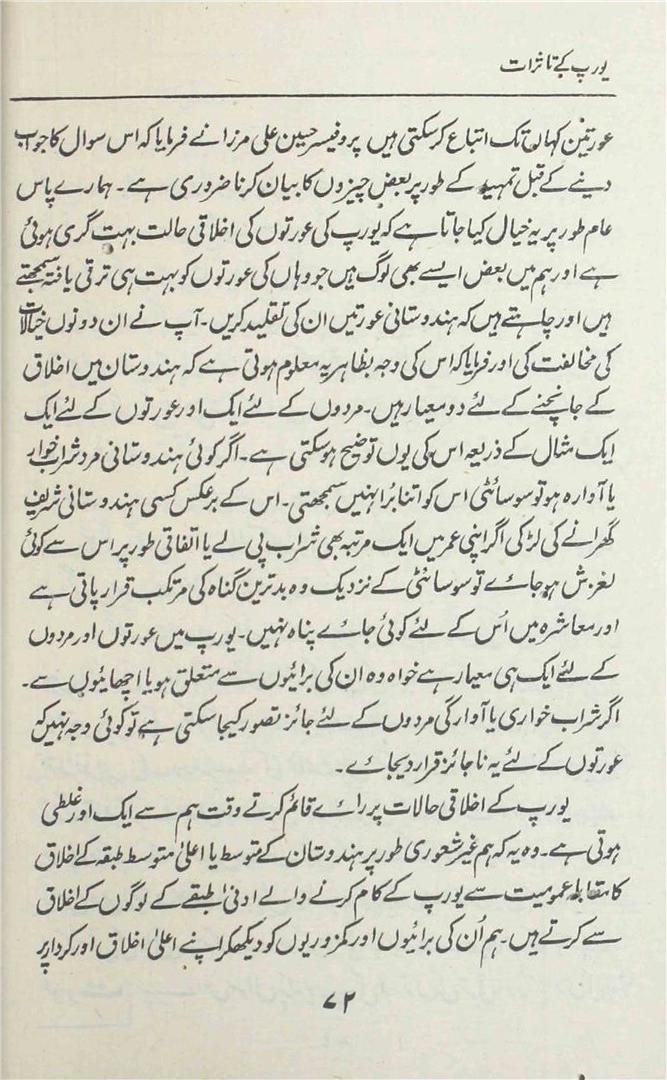 یورپ کے تاثرات
عورتیں کہاں تک اتباع کرسکتی ہیں پروفیسر حسین علی مرزا نے فرمایا کہ اس سوال کا جواب
دینے کے قبل تمہید کے طور پر بعض چیزوں کا بیان کرنا ضروری ہے۔ ہمارے پاس
عام طور پر یہ خیال کیا جاتا ہے کہ یورپ کی عورتوں کی اخلاقی حالت بہت گری ہوئی
ہے اور ہم میں بعض ایسے بھی لوگ ہیں جو وہاں کی عورتوں کو بہت ہی ترقی یافتہ سمجھتے
ہیں اور چاہتے ہیں کہ ہندوستانی عورتیں ان کی تقلید کریں۔ آپ نے ان دونوں خیالات
کی مخالفت کی اور فرمایا کہ اس کی وجہ بظاہر یہ معلوم ہوتی ہے کہ ہندوستان میں اخلاق
کے جانچنے کے لئے دو معیار ہیں۔ مردوں کے لئے ایک اور عورتوں کے لئے ایک
ایک مثال کے ذریعہ اس کی یوں توضیح ہوسکتی ہے۔ اگر کوئی ہندوستانی مرد شراب خوار
یا آوارہ ہو تو سوسائٹی اس کو اتنا برا نہیں سمجھتی۔ اس کے برعکس کسی ہندوستانی شریف
گھرانے کی لڑکی اگر اپنی عمر میں ایک مرتبہ بھی شراب پی لے یا اتفاقی طور پر اس سے کوئی
لغزش ہوجائے تو سوسائٹی کے نزدیک وہ بدترین گناہ کی مرتکب قرار پاتی ہے
اور معاشرہ میں اُس کے لئے کوئی جائے پناہ نہیں۔ یورپ میں عورتوں اور مردوں
کے لئے ایک ہی معیار ہے خواہ وہ ان کی برائیوں سے متعلق ہو یا اچھائیوں سے۔
اگر شراب خواری یا آوارگی مردوں کے لئے جائز تصور کیجاسکتی ہے تو کوئی وجہ نہیں کہ
عورتوں کے لئے یہ ناجائز قرار دیجائے۔
یورپ کے اخلاقی حالات پر رائے قائم کرتے وقت ہم سے ایک اور غلطی
ہوتی ہے۔ وہ یہ کہ ہم غیر شعوری طور پر ہندوستان کے متوسط یا اعلیٰ متوسط طبقہ کے اخلاق
کا مقابلہ عمومیت سے یورپ کے کام کرنے والے ادنیٰ طبقے کے لوگوں کے اخلاق
سے کرتے ہیں۔ ہم اُن کی برائیوں اور کمزوریوں کو دیکھکر اپنے اعلیٰ اخلاق اور کردار پر
۷۲